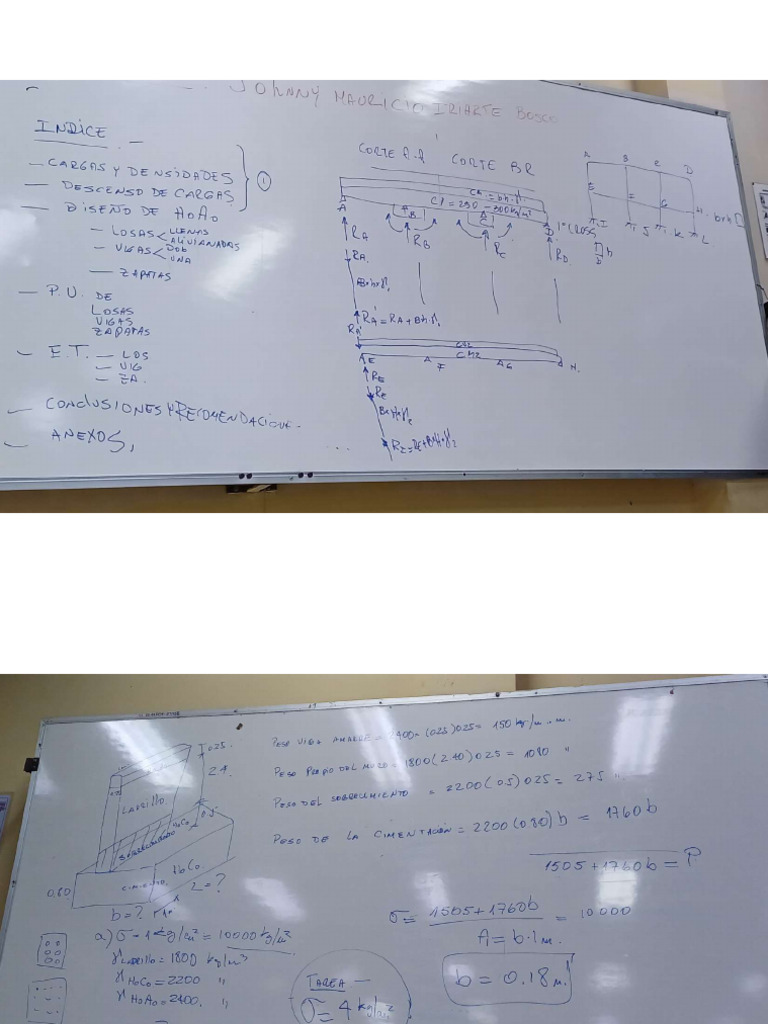 JOHNNY MAURICIO IRIARTE BOSCO
INDICE
- CARGAS Y DENSIDADES
- DESCENSO DE CARGAS
- DISEÑO DE HoAo
1
- LOSAS < LLENAS
ALIVIANADAS
- VIGAS < DOB
UNA
- ZAPATAS
- P.U. DE
LOSAS
VIGAS
ZAPATAS
- E.T. - LOS
- VIG
- ZA.
- CONCLUSIONES Y RECOMENDACION.
- ANEXOS,
CORTE A-A
CORTE BR
C1 = 250 - 300 kg/m²
A
B
C
D
1° CROSS
RA
RB
RC
RD
RA
RA' = RA + B·h·γ1
RA'
CM2
CM2
E
F
G
H.
RE
RE
A B C D
E G H
I J K L
b
h
PESO VIGA AMARRE = 2400 × (0.25) 0.25 = 150 kg/m
PESO PROPIO DEL MURO = 1800 (2.40) 0.25 = 1080 "
PESO DEL SOBRECIMIENTO = 2200 (0.5) 0.25 = 275 "
PESO DE LA CIMENTACIÓN = 2200 (0.80) b = 1760 b
1505 + 1760 b = P
σ = 1505 + 1760 b / A = b·1 m. = 10000
b = 0.18 m.
0.25.
2.4
LADRILLO
HoCo
0.5
SOBRECIMIENTO
HoCo.
0.80
L = ?
b = ?
a) σ = 1 kg/cm² = 10000 kg/m²
γ LADRILLO = 1800 kg/m³
γ HoCo = 2200 "
γ HoAo = 2400. "
TAREA -
σ = 4 kg/cm²